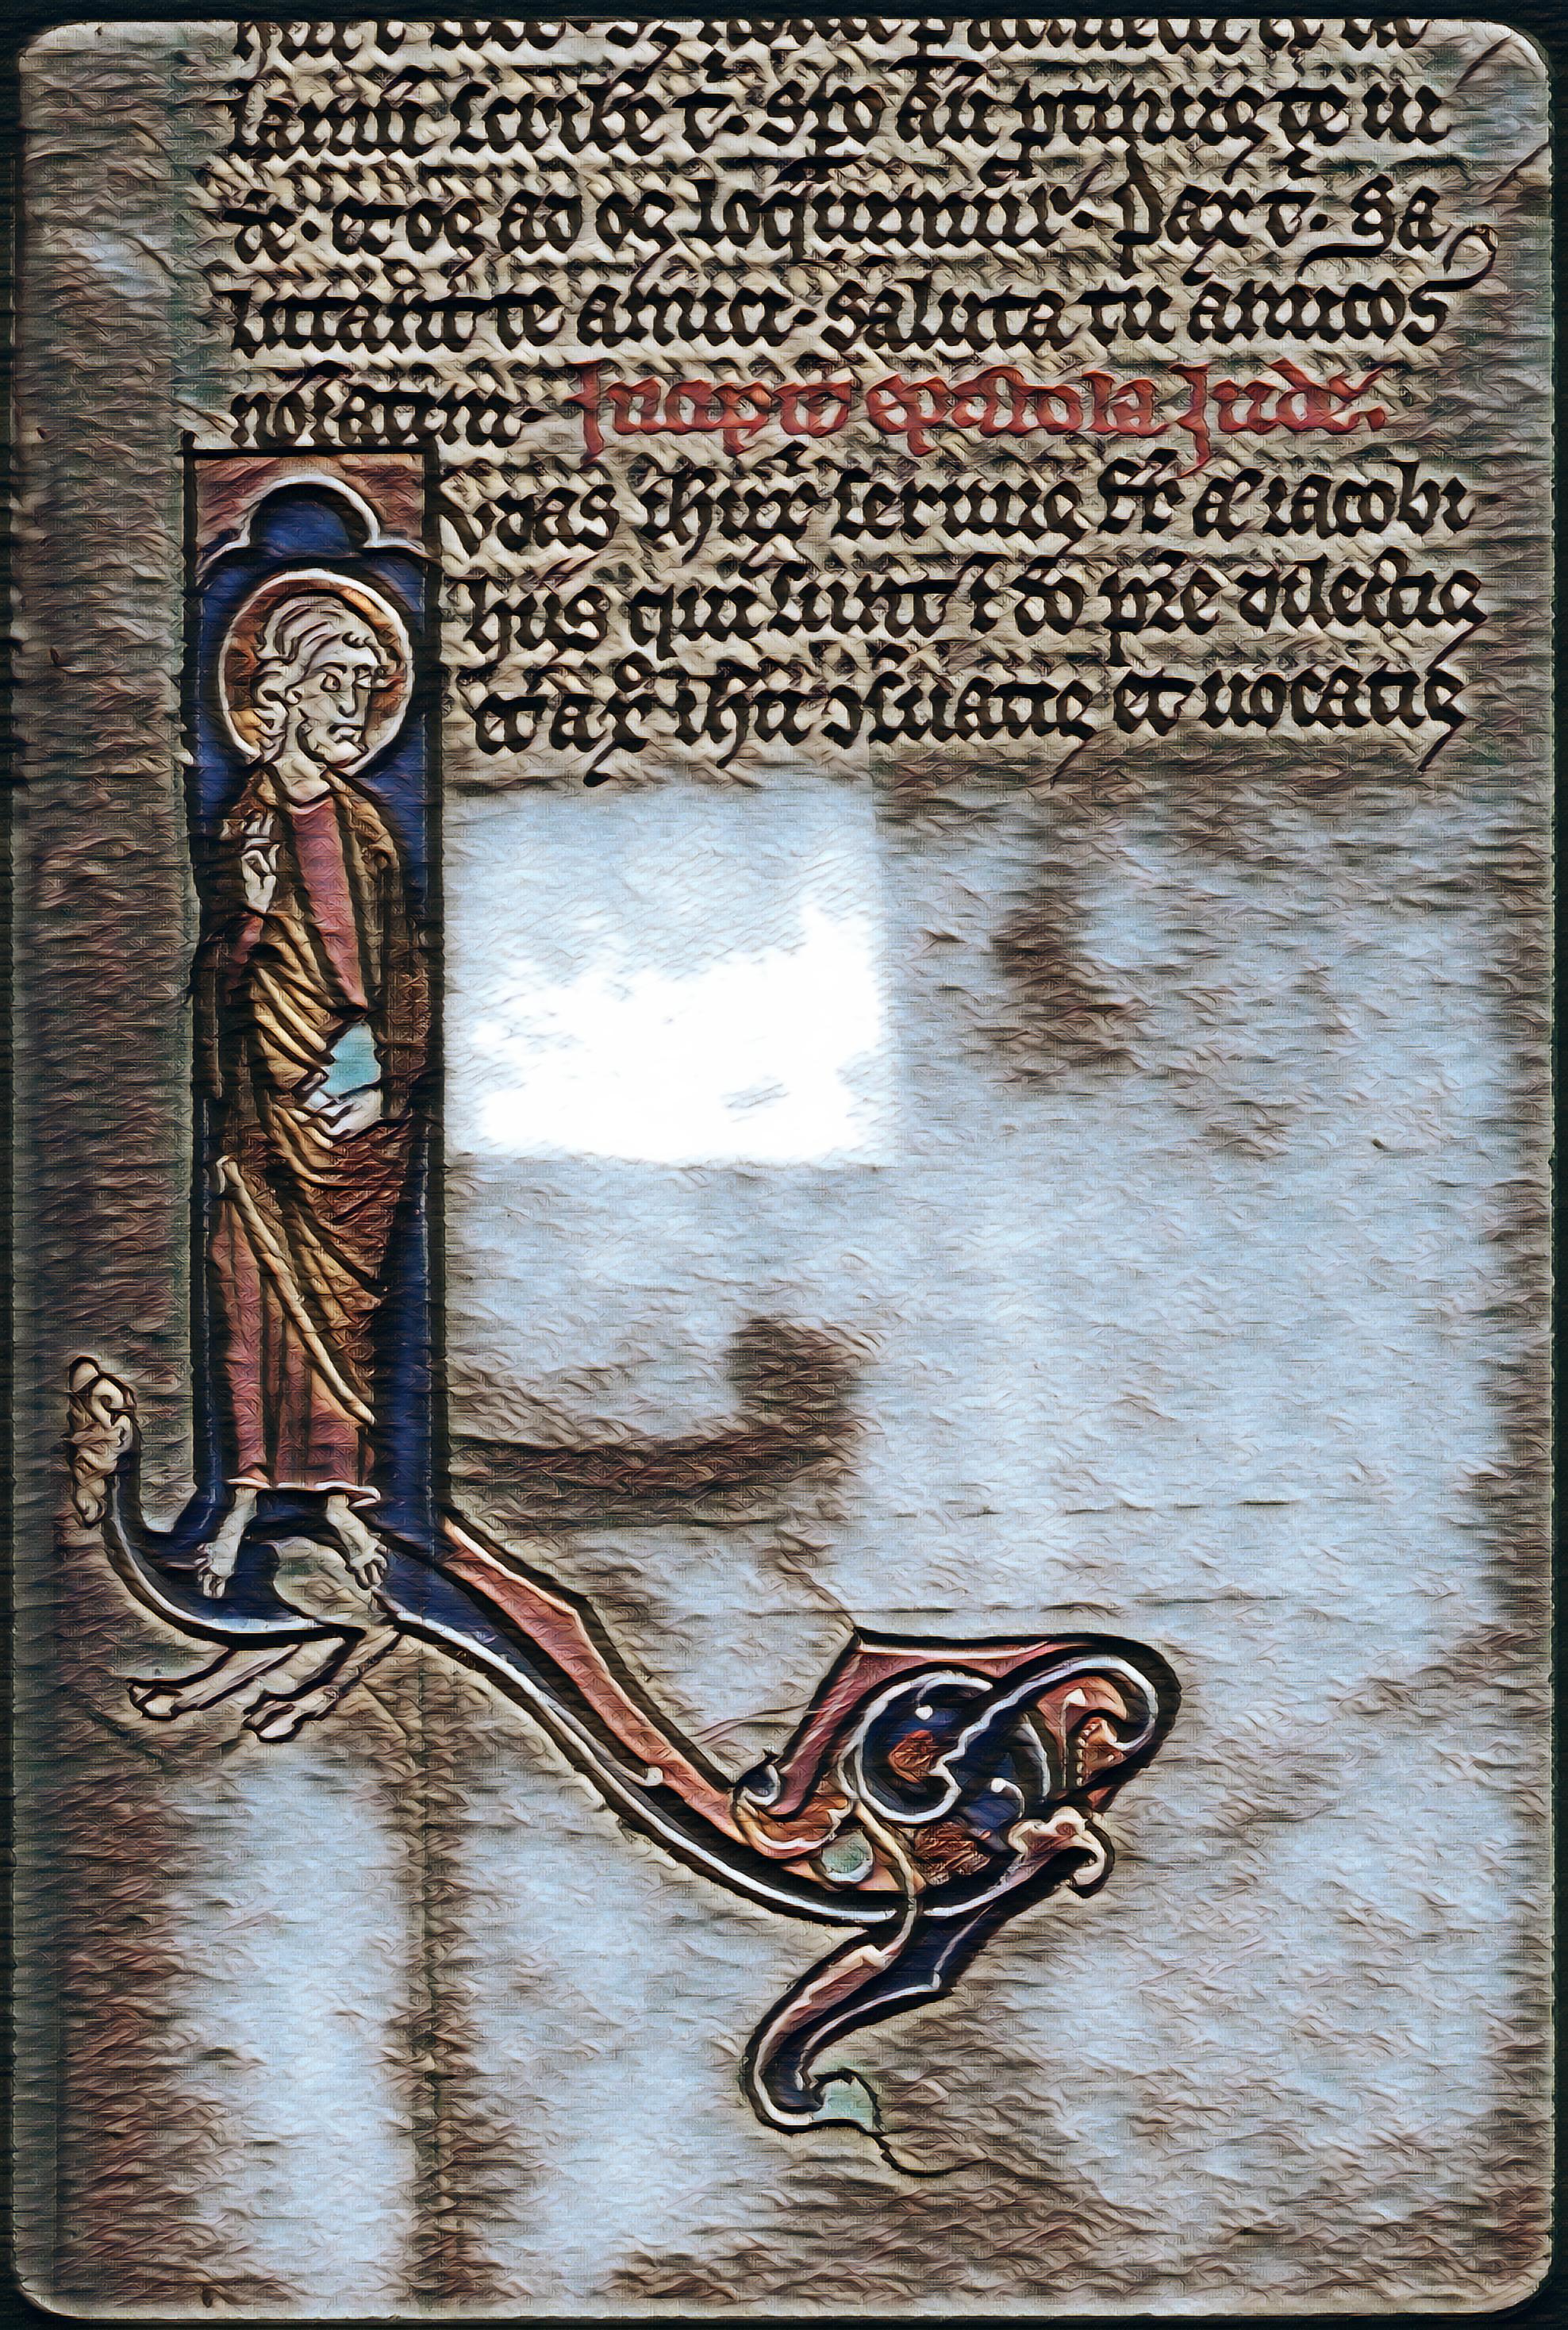 lamū scribe t̄. Spo aūt ꝓtinꝰ te ui
de. et os ad os loquemur. Pax t̄. Sa
lutant te amici. Saluta tu amicos
noīatim. Incipit epistola Jude.
vdas ihu xr̄ seruus fr̄ aū iacobi
hiis qui sunt ī do pr̄e dilectis
et xp̄o ihu ꝯẜuatis et uocatis